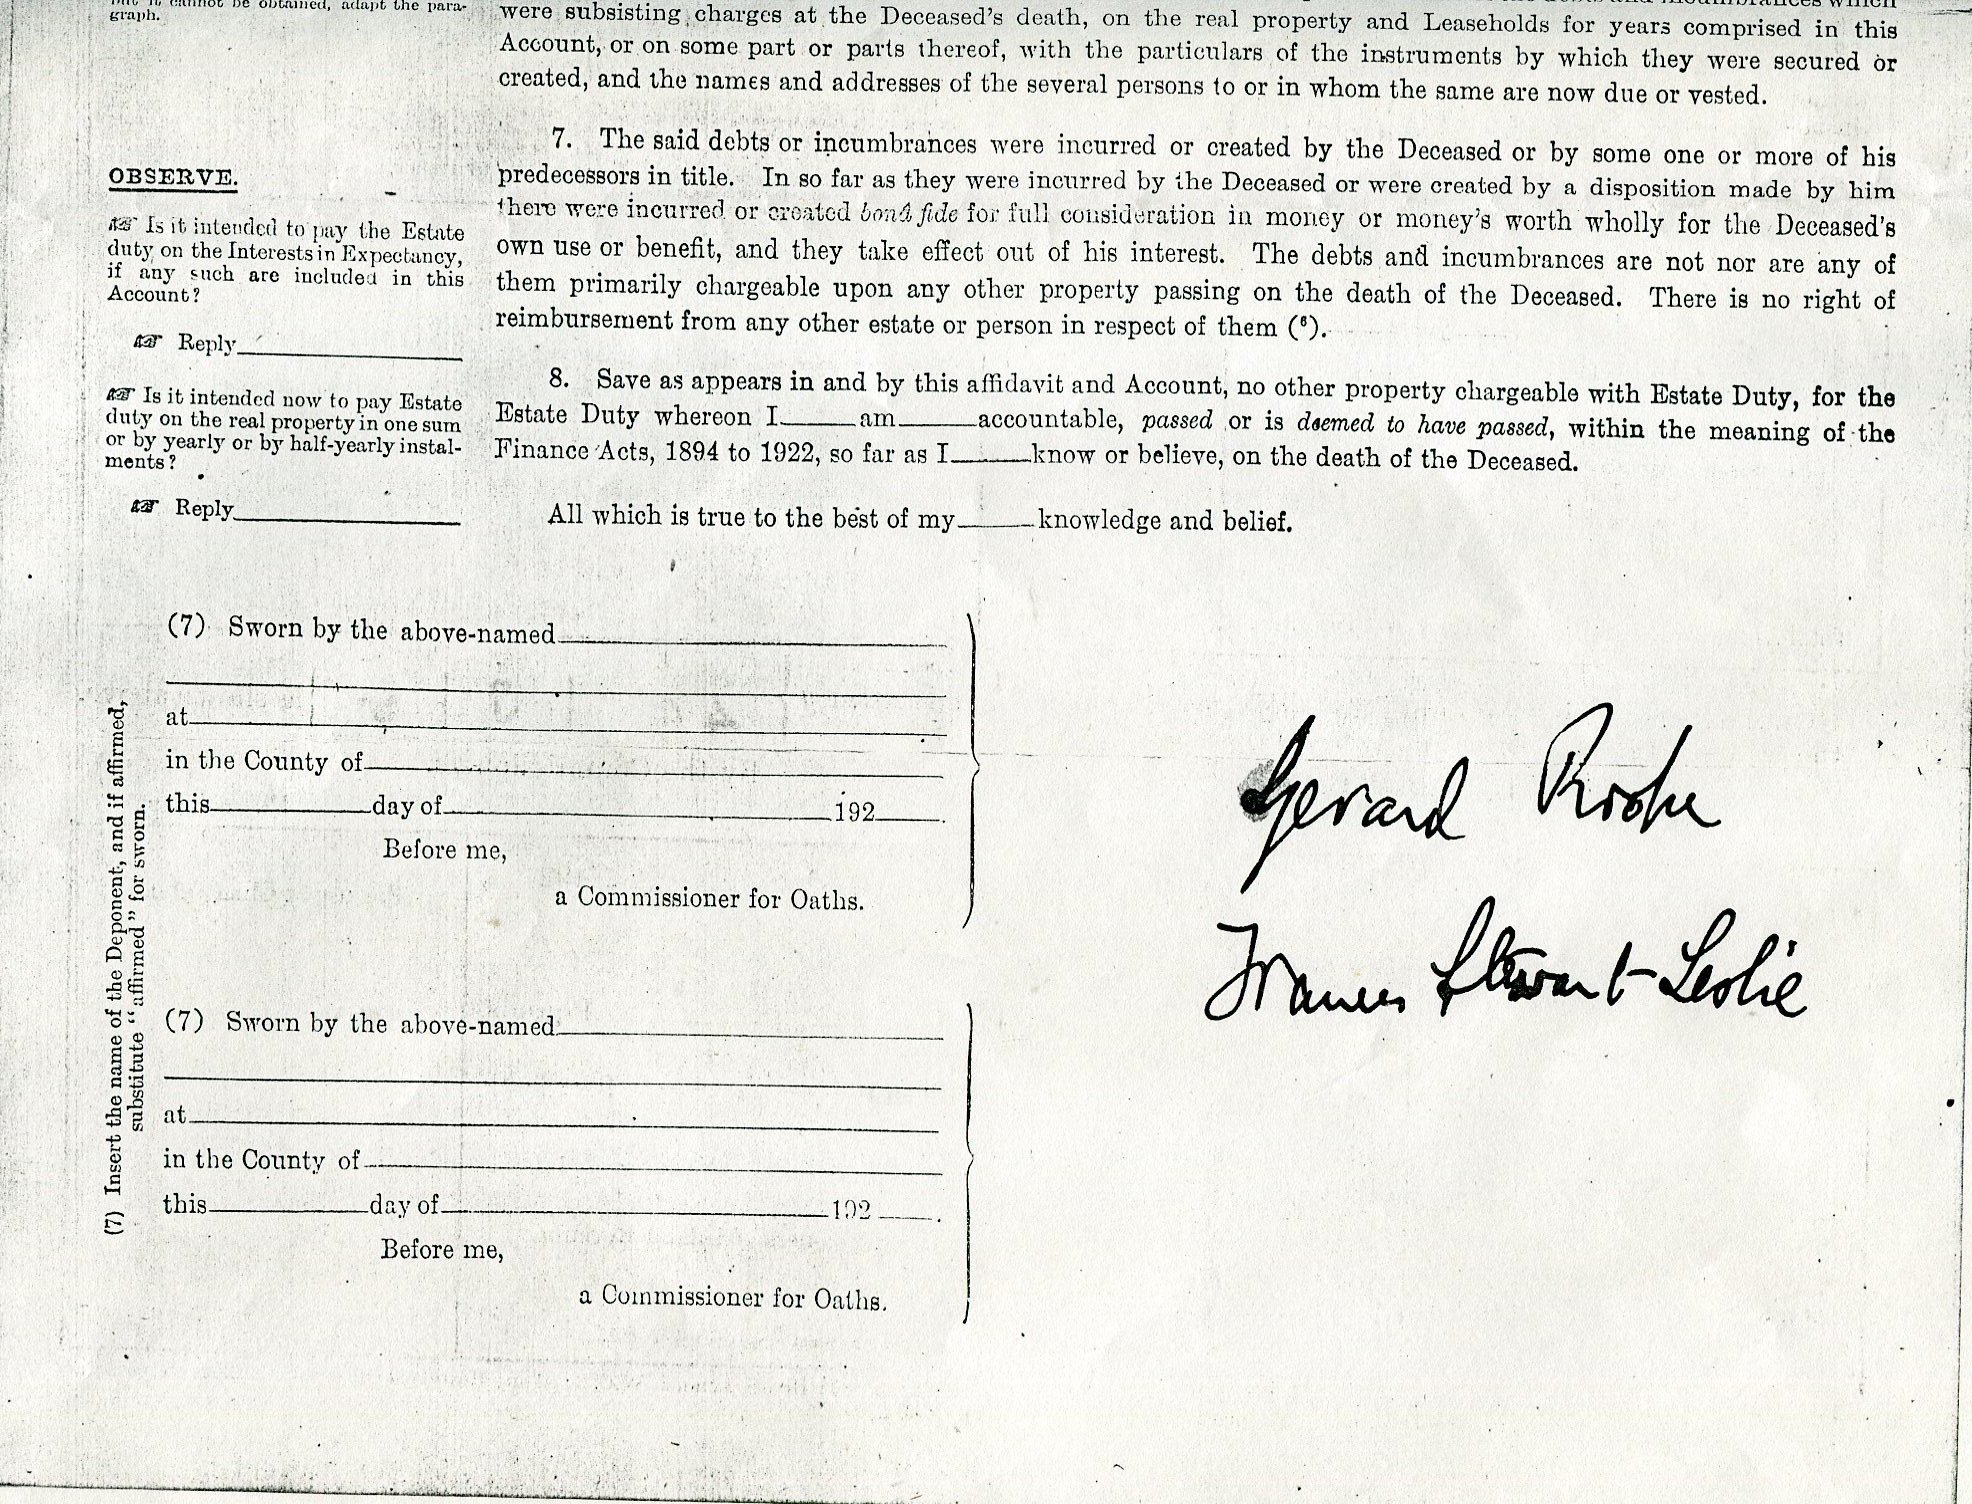 graph.
were subsisting charges at the Deceased's death, on the real property and Leaseholds for years comprised in this
Account, or on some part or parts thereof, with the particulars of the instruments by which they were secured or
created, and the names and addresses of the several persons to or in whom the same are now due or vested.
7. The said debts or incumbrances were incurred or created by the Deceased or by some one or more of his
predecessors in title. In so far as they were incurred by the Deceased or were created by a disposition made by him
there were incurred or created bonâ fide for full consideration in money or money's worth wholly for the Deceased's
own use or benefit, and they take effect out of his interest. The debts and incumbrances are not nor are any of
them primarily chargeable upon any other property passing on the death of the Deceased. There is no right of
reimbursement from any other estate or person in respect of them (⁶).
8. Save as appears in and by this affidavit and Account, no other property chargeable with Estate Duty, for the
Estate Duty whereon I am accountable, passed or is deemed to have passed, within the meaning of the
Finance Acts, 1894 to 1922, so far as I know or believe, on the death of the Deceased.
All which is true to the best of my knowledge and belief.
OBSERVE.
☞ Is it intended to pay the Estate
duty on the Interests in Expectancy,
if any such are included in this
Account?
☞ Reply
☞ Is it intended now to pay Estate
duty on the real property in one sum
or by yearly or by half-yearly instal-
ments?
☞ Reply
(7) Insert the name of the Deponent, and if affirmed,
substitute "affirmed" for sworn.
(7) Sworn by the above-named
at
in the County of
this day of 192 .
Before me,
a Commissioner for Oaths.
Gerard Roche
Frances Stewart-Leslie
(7) Sworn by the above-named
at
in the County of
this day of 192 .
Before me,
a Commissioner for Oaths.